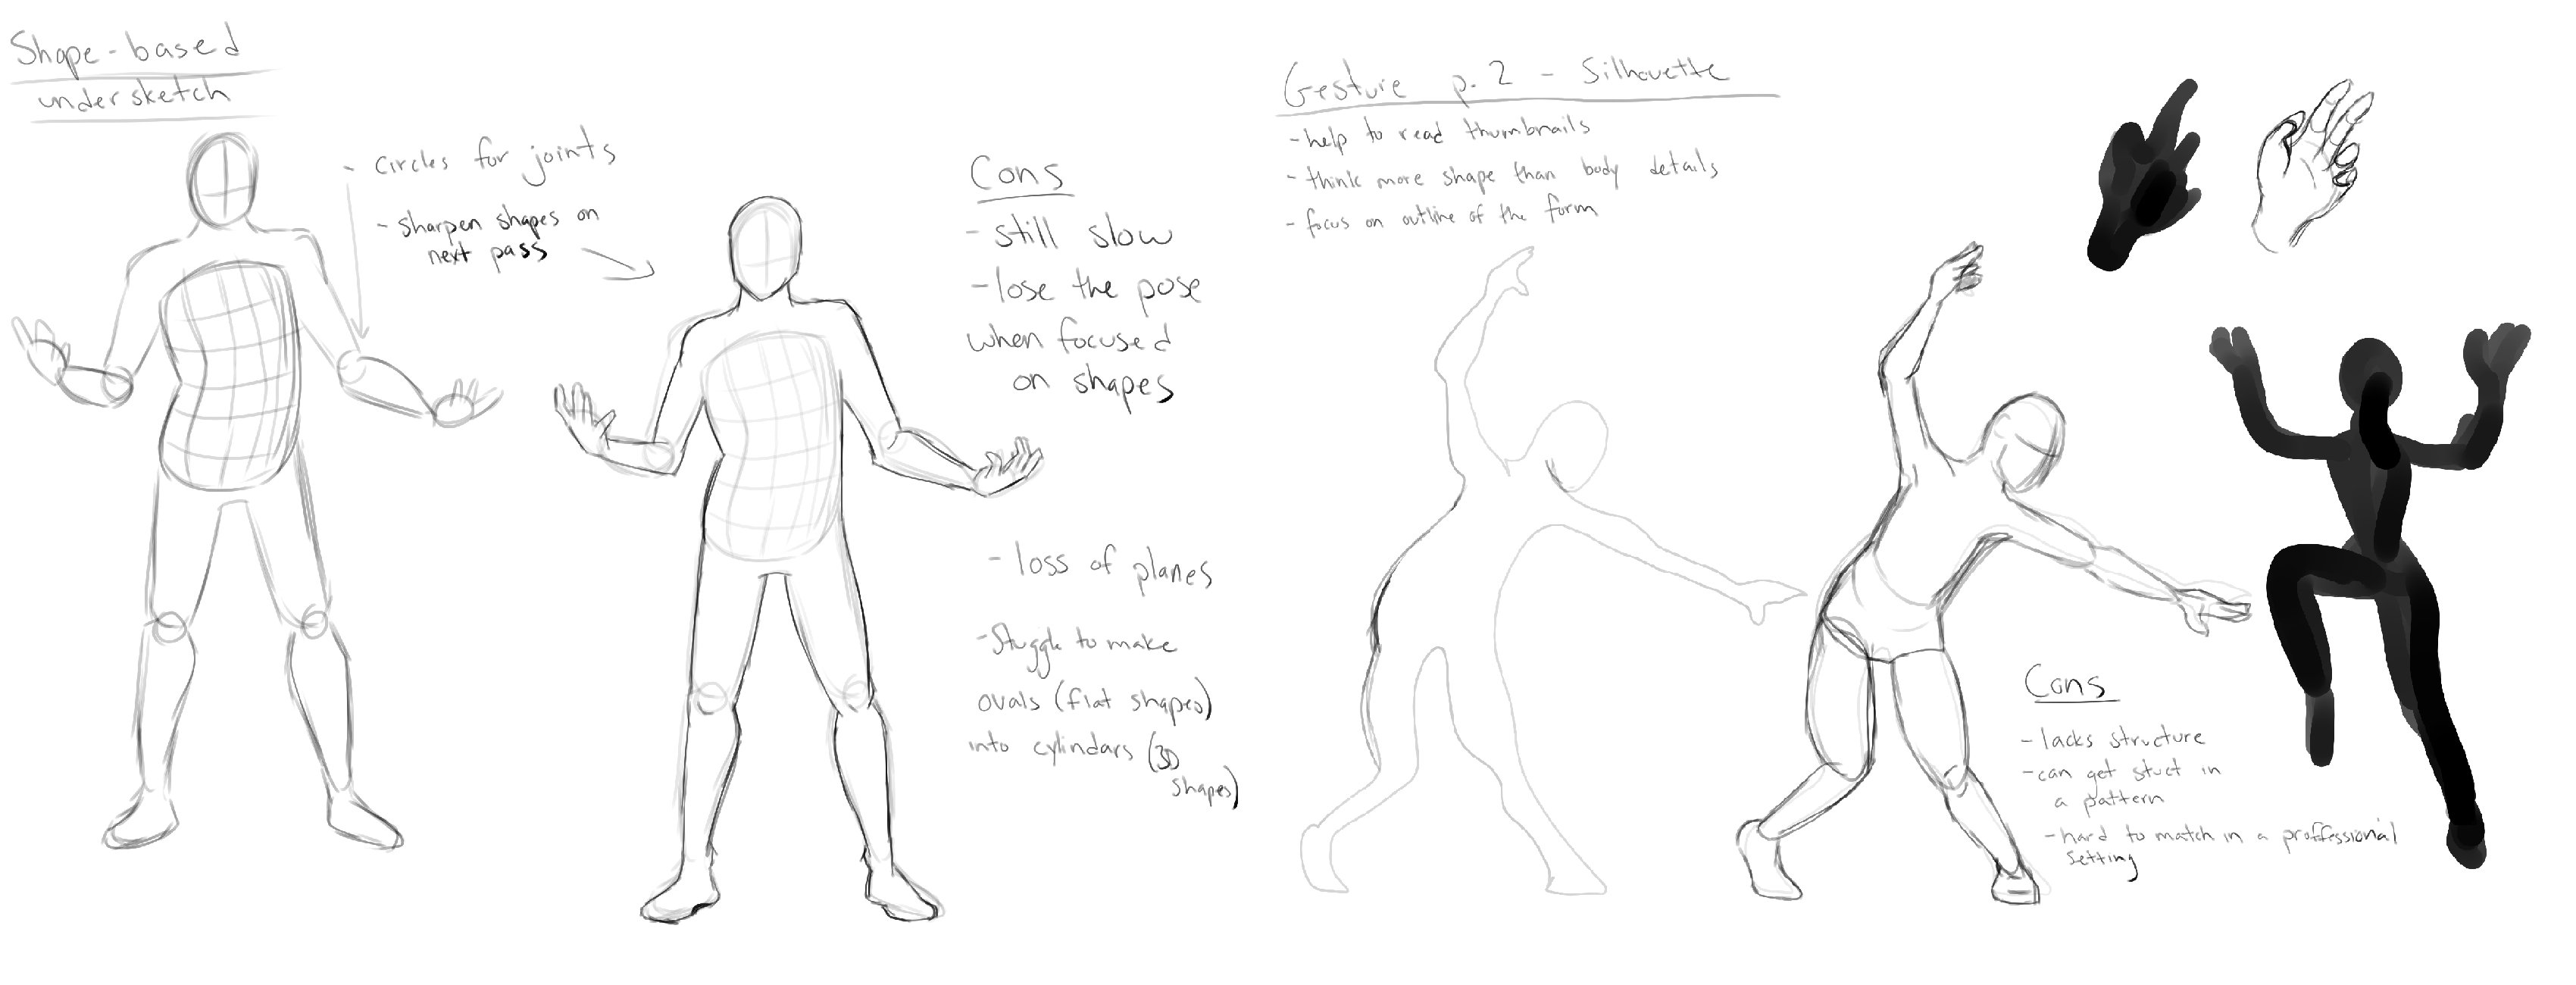 Shape-based
undersketch
- circles for joints
- sharpen shapes on
next pass
Cons
- still slow
- lose the pose
when focused
on shapes
- loss of planes
- Stuggle to make
ovals (flat shapes)
into cylindars (3D
shapes)
Gesture p. 2 - Silhouette
- help to read thumbnails
- think more shape than body details
- focus on outline of the form
Cons
- lacks structure
- can get stuct in
a pattern
- hard to match in a proffessional
setting